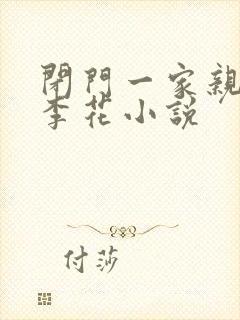 閉門一家親
李花小説
付莎